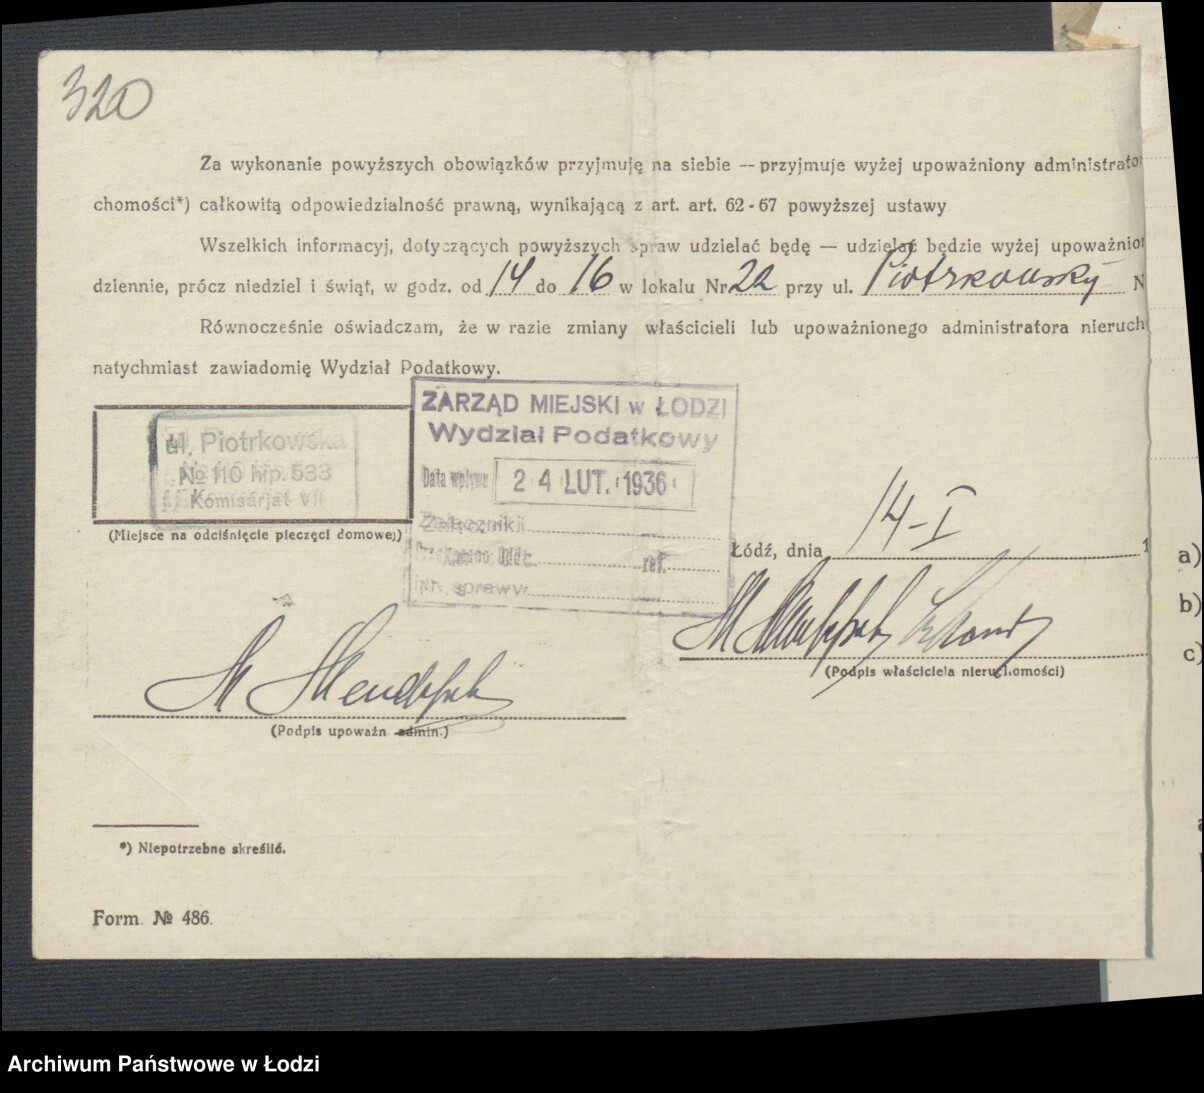 320
Za wykonanie powyższych obowiązków przyjmuję na siebie — przyjmuje wyżej upoważniony administrator
chomości*) całkowitą odpowiedzialność prawną, wynikającą z art. art. 62-67 powyższej ustawy
Wszelkich informacyj, dotyczących powyższych spraw udzielać będę — udzielać będzie wyżej upoważnion
dziennie, prócz niedziel i świąt, w godz. od 14 do 16 w lokalu Nr 22 przy ul. Piotrkowskiej N
Równocześnie oświadczam, że w razie zmiany właścicieli lub upoważnionego administratora nieruch
natychmiast zawiadomię Wydział Podatkowy.
ul. Piotrkowska
№ 110 hip. 533
Komisarjat VII
(Miejsce na odciśnięcie pieczęci domowej)
ZARZĄD MIEJSKI w ŁODZI
Wydział Podatkowy
Data wpływu 24 LUT. 1936
Załączniki
Przekazano Odd. ref.
Nr. sprawy
Łódź, dnia 14-I 1
a)
b)
c)
(Podpis właściciela nieruchomości)
(Podpis upoważn. admin.)
*) Niepotrzebne skreślić.
Form. № 486.
Archiwum Państwowe w Łodzi